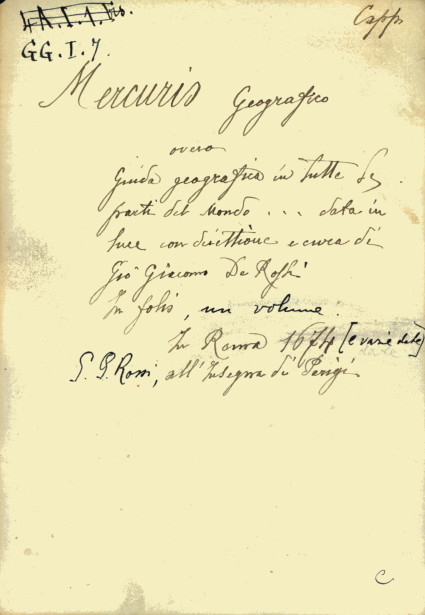 4 A. I. 1. bis.
Capp.
GG. I. 7.
Mercurio Geografico
overo
Guida geografica in tutte le
parti del Mondo ... data in
luce con direttione e cura di
Gio Giacomo De Rossi
In folio, un volume.
In Roma 1674 [e varie date]
G. G. Rossi, all'Insegna di Parigi
C